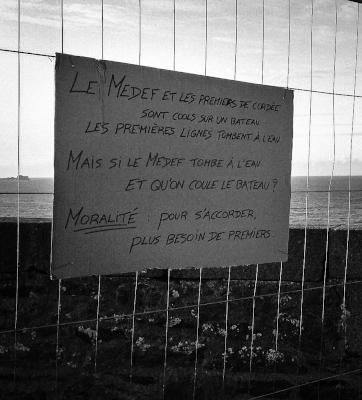 LE MEDEF ET LES PREMIERS DE CORDÉE
SONT COOLS SUR UN BATEAU
LES PREMIÈRES LIGNES TOMBENT À L'EAU
MAIS SI LE MEDEF TOMBE À L'EAU
ET QU'ON COULE LE BATEAU ?
MORALITÉ : POUR S'ACCORDER,
PLUS BESOIN DE PREMIERS.